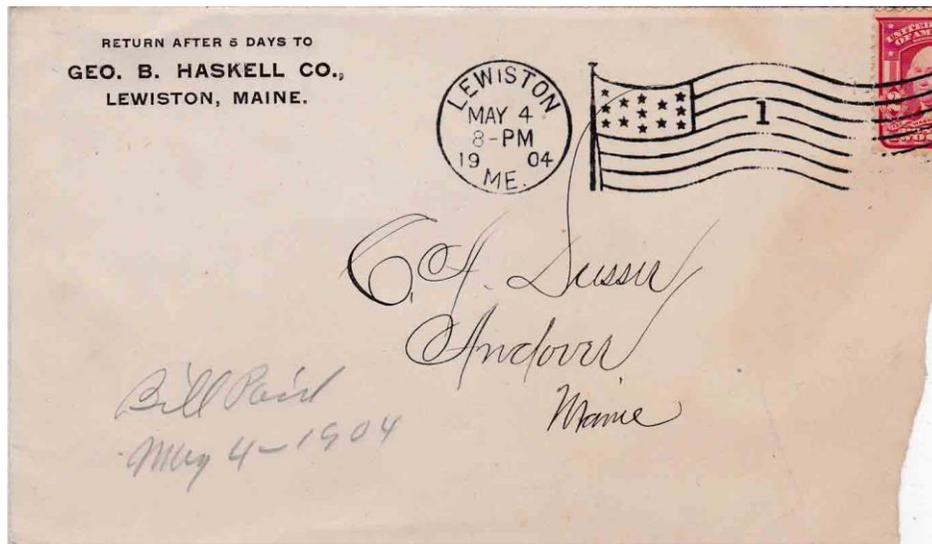 RETURN AFTER 5 DAYS TO
GEO. B. HASKELL CO.,
LEWISTON, MAINE.
LEWISTON
MAY 4
8-PM
19 04
ME.
1
UNITED
OF AM
Andover
Maine
Bill Paid
May 4-1904